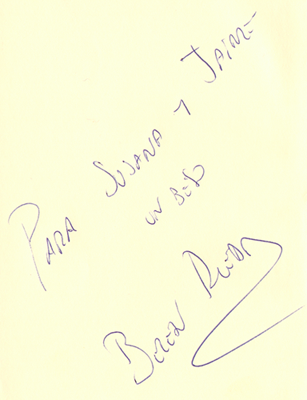 PARA SUSANA Y JAIME
UN BESO
BELEN RUEDA